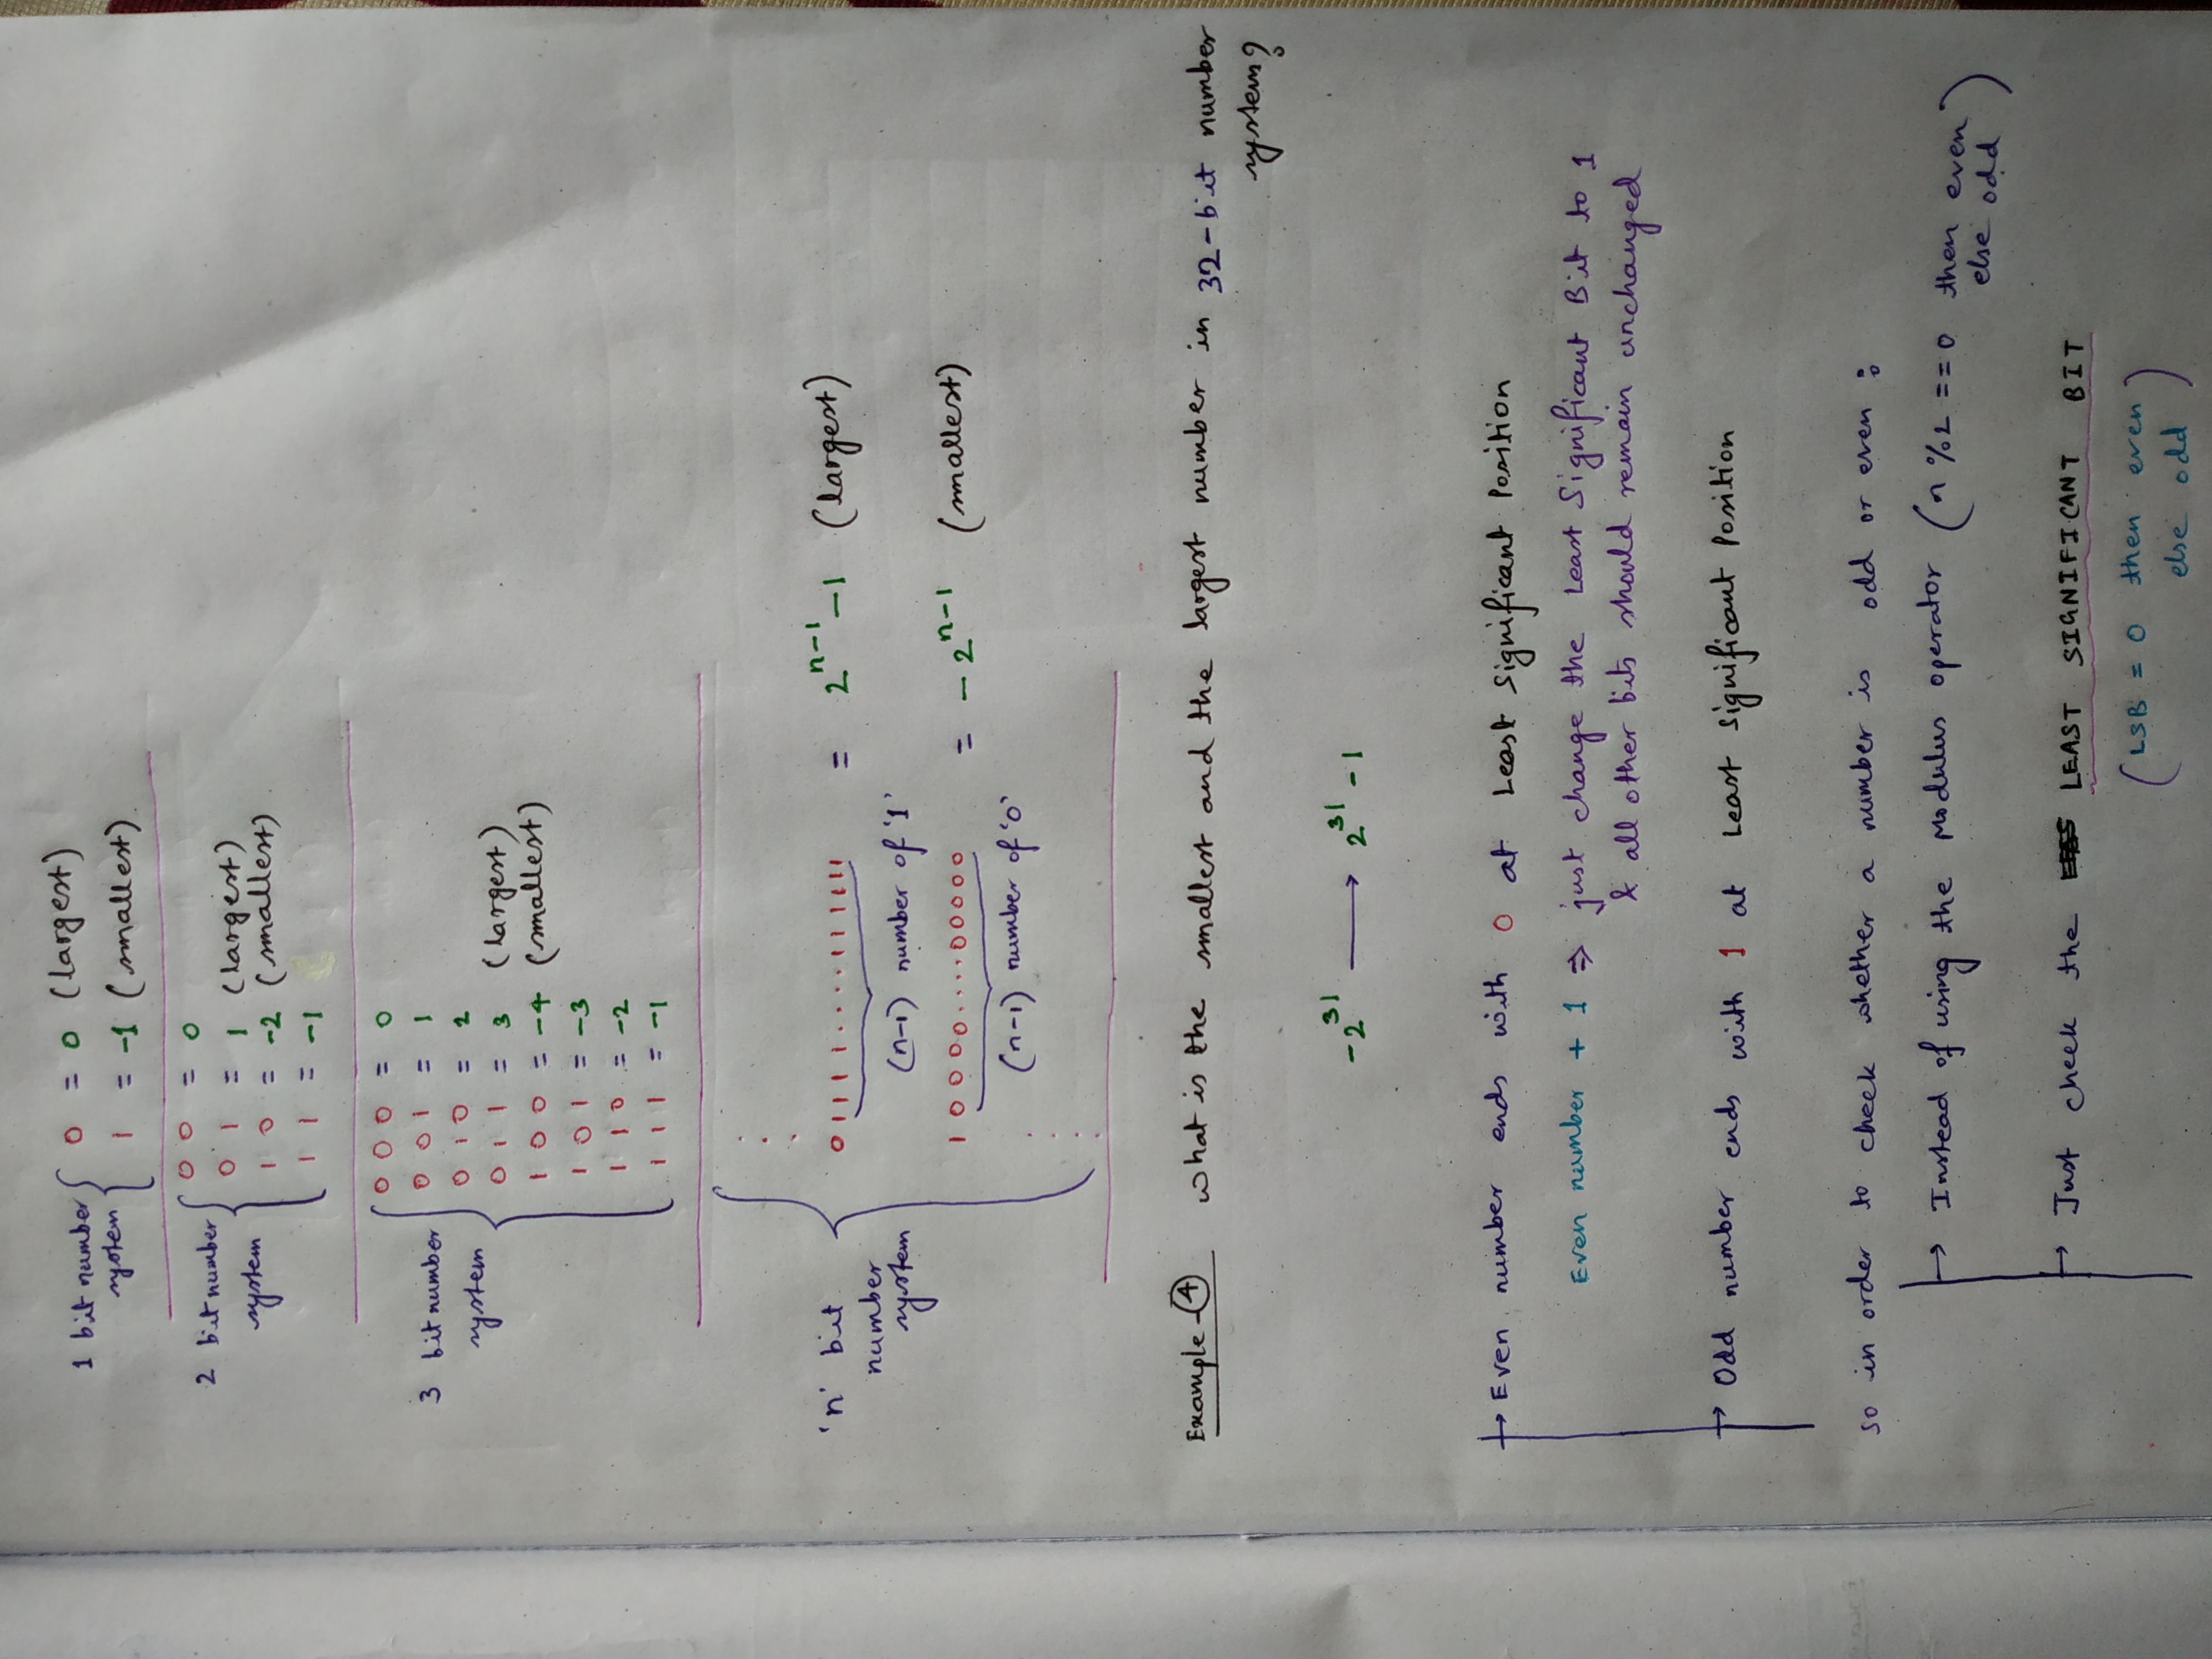 1 bit number system { 0 = 0 (largest)
1 = -1 (smallest)
2 bit number system { 0 0 = 0
0 1 = 1 (largest)
1 0 = -2 (smallest)
1 1 = -1
3 bit number system { 0 0 0 = 0
0 0 1 = 1
0 1 0 = 2
0 1 1 = 3 (largest)
1 0 0 = -4 (smallest)
1 0 1 = -3
1 1 0 = -2
1 1 1 = -1
'n' bit number system {
0 1 1 1 1 1 ..... 1 1 1 1 1 1 1 = 2^{n-1} - 1 (largest)
(n-1) number of '1'
1 0 0 0 0 .... 0 0 0 0 0 = -2^{n-1} (smallest)
(n-1) number of '0'
Example-④ What is the smallest and the largest number in 32-bit number
system?
-2^{31} ⟶ 2^{31} - 1
→ Even number ends with 0 at Least Significant Position
Even number + 1 ⇒ just change the Least Significant Bit to 1
& all other bits should remain unchanged
→ Odd number ends with 1 at Least Significant Position
so in order to check whether a number is odd or even :
→ Instead of using the Modulus operator (n %2 == 0 then even
else odd)
→ Just check the LEAST SIGNIFICANT BIT
(LSB = 0 then even
else odd)